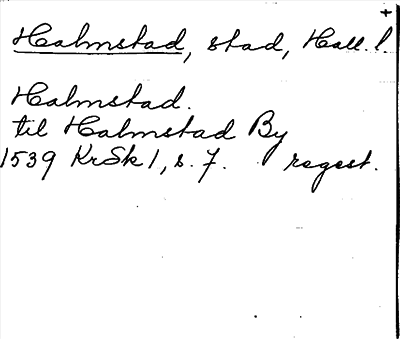 +
Halmstad, stad, Hall. l.
Halmstad.
til Halmstad By
1539 KrSk 1, s. 7. regest.